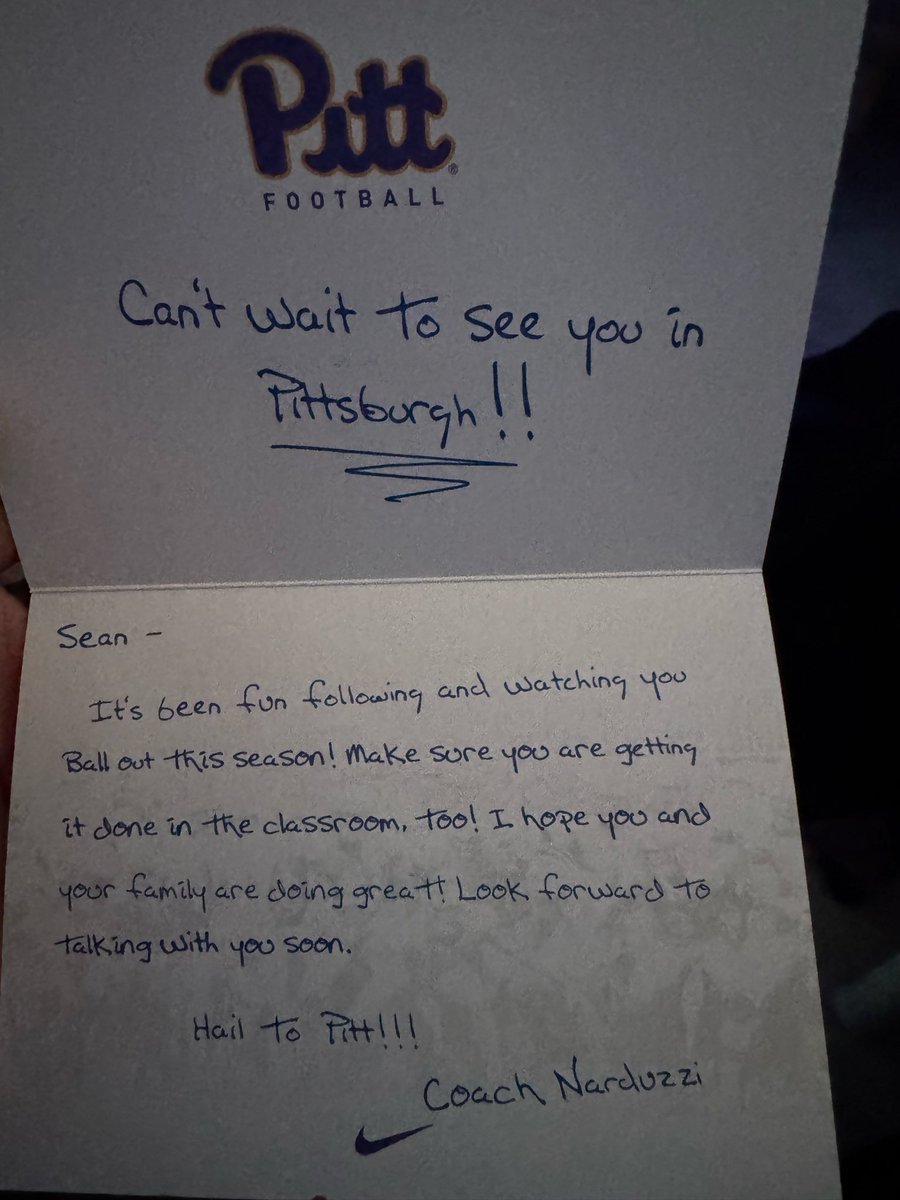 Pitt
FOOTBALL
Can't wait to see you in
Pittsburgh!!
Sean -
It's been fun following and watching you
Ball out this season! Make sure you are getting
it done in the classroom, too! I hope you and
your family are doing great! Look forward to
talking with you soon.
Hail to Pitt!!!
Coach Narduzzi